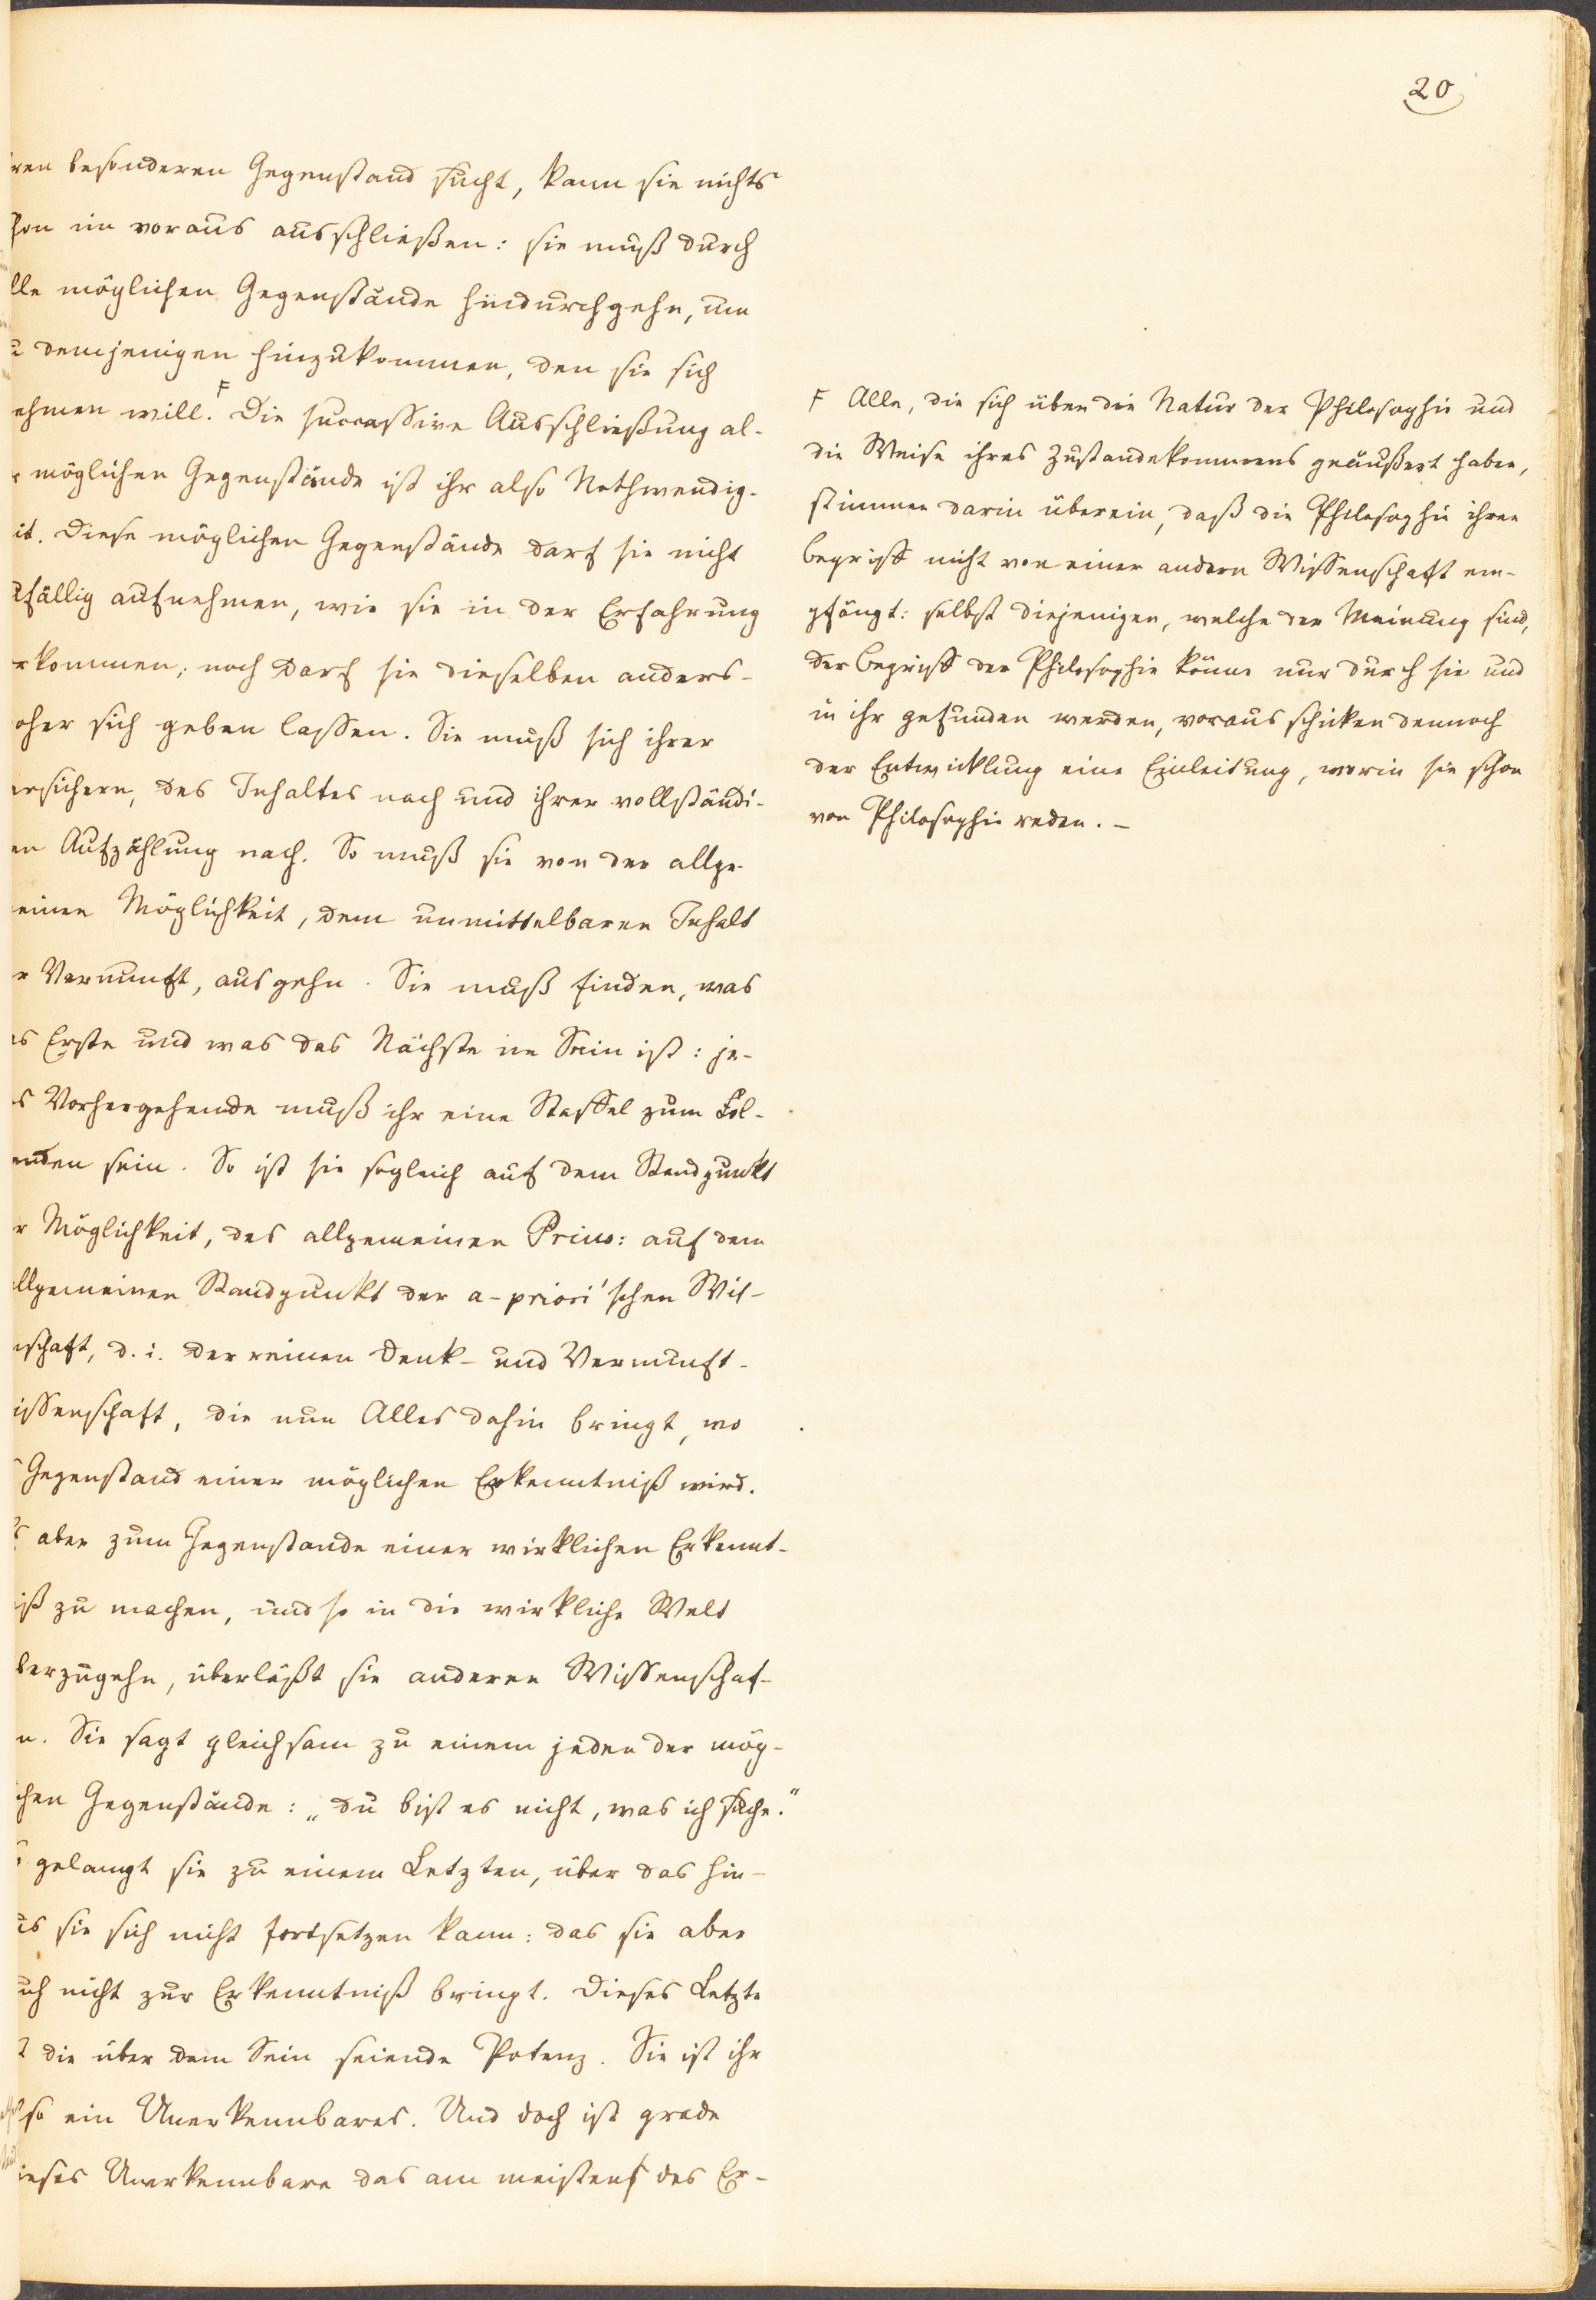 20
ren besonderen Gegenstand sucht, kann sie nichts
hon im voraus ausschließen: sie muß durch
lle möglichen Gegenstände hindurchgehn, um
u demjenigen hinzukommen, den sie sich
ehmen will. F Die successive Ausschließung al-
r möglichen Gegenstände ist ihr also Nothwendig-
it. Diese möglichen Gegenstände darf sie nicht
ufällig aufnehmen, wie sie in der Erfahrung
rkommen; noch darf sie dieselben anders-
oher sich geben lassen. Sie muß sich ihrer
ersichern, des Inhaltes nach und ihrer vollständi-
en Aufzählung nach. So muß sie von der allge-
einen Möglichkeit, dem unmittelbaren Inhalt
r Vernunft, ausgehn. Sie muß finden, was
as Erste und was das Nächste im Sein ist: je-
s Vorhergehende muß ihr eine Staffel zum Fol-
enden sein. So ist sie sogleich auf dem Standpunkt
r Möglichkeit, des allgemeinen Prius: auf dem
llgemeinen Standpunkt der a-priori'schen Wis-
nschaft, d. i. der reinen Denk- und Vernunft-
issenschaft, die nun Alles dahin bringt, wo
s Gegenstand einer möglichen Erkenntniß wird.
s aber zum Gegenstande einer wirklichen Erkennt-
iß zu machen, und so in die wirkliche Welt
berzugehn, überläßt sie anderen Wissenschaf-
n. Sie sagt gleichsam zu einem jeden der mög-
chen Gegenstände: „Du bist es nicht, was ich suche.“
o gelangt sie zu einem Letzten, über das hin-
us sie sich nicht fortsetzen kann: das sie aber
uch nicht zur Erkenntniß bringt. Dieses Letzte
t die über dem Sein seiende Potenz. Sie ist ihr
lso ein Unerkennbares. Und doch ist grade
ieses Unerkennbare das am meisten des Er-
F Alle, die sich über die Natur der Philosophie und
die Weise ihres Zustandekommens geäußert haben,
stimmen darin überein, daß die Philosophie ihren
Begriff nicht von einer andern Wissenschaft em-
pfängt: selbst diejenigen, welche der Meinung sind,
der Begriff der Philosophie könne nur durch sie und
in ihr gefunden werden, vorausschicken dennoch
der Entwicklung eine Einleitung, worin sie schon
von Philosophie reden. –